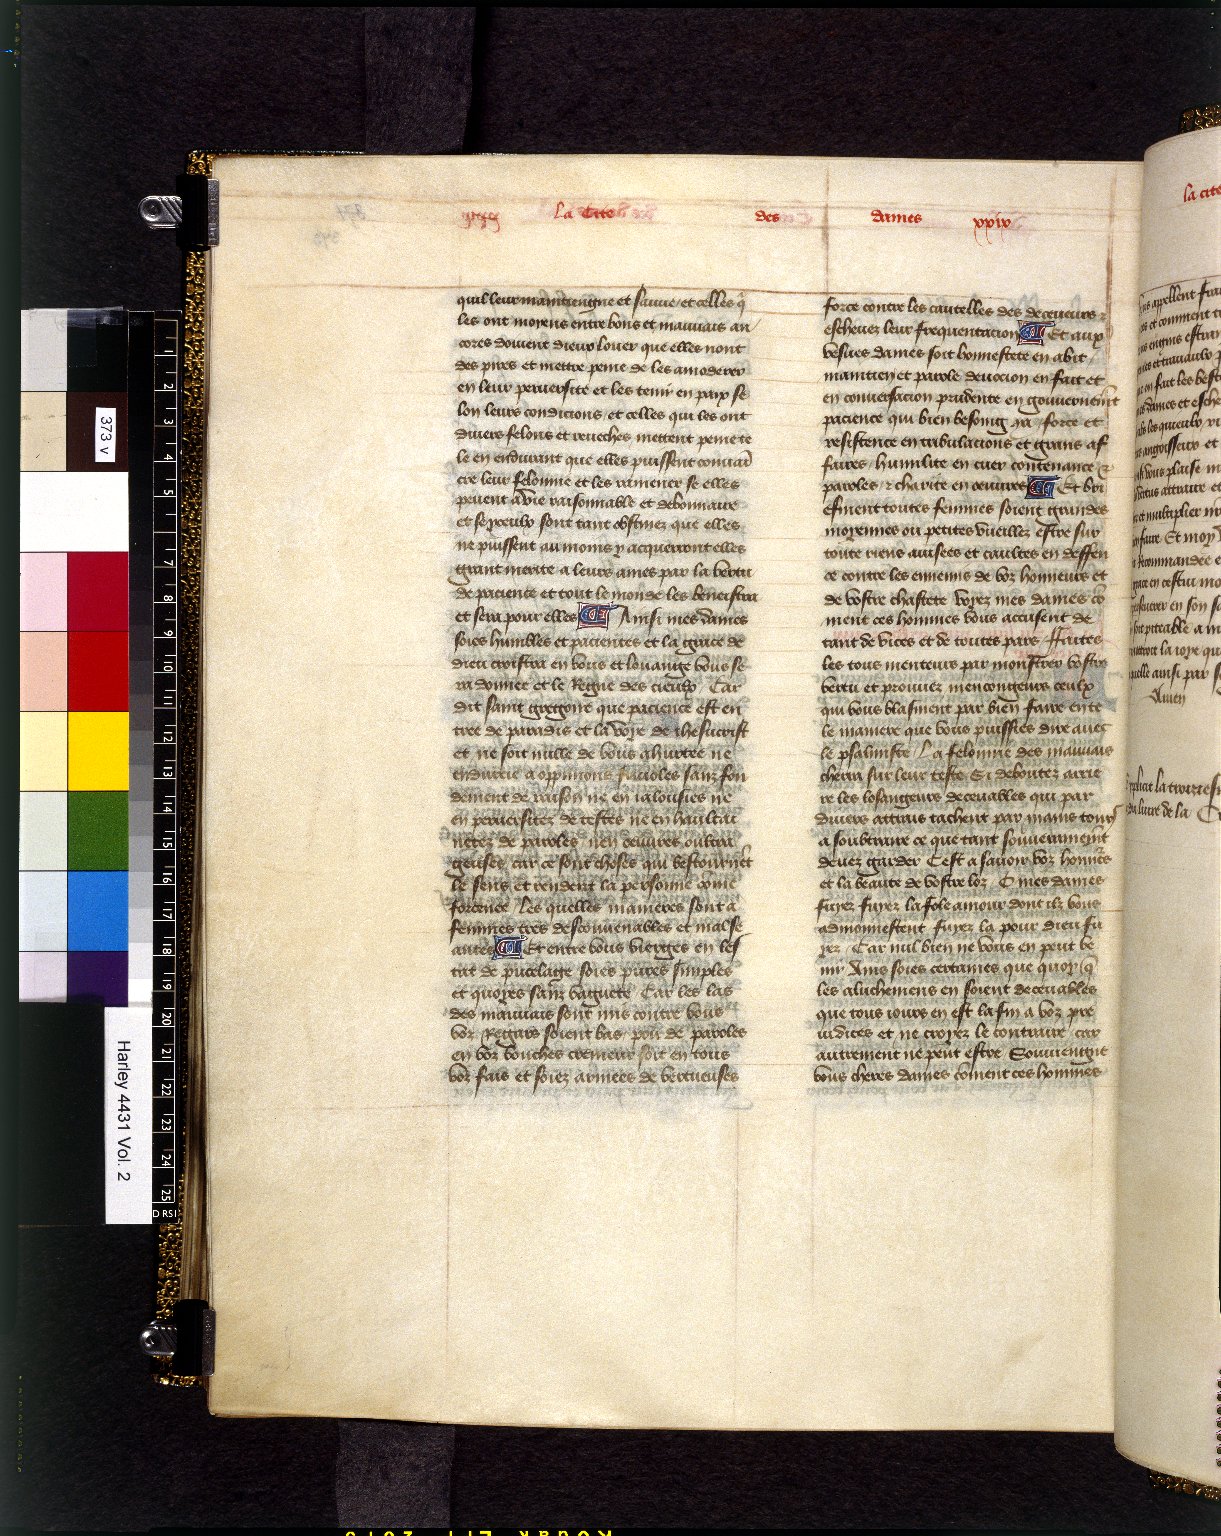 La Cite des dames xxix
quil leur maintiengne et sauue et celles q̄
les ont moyens entre bons et mauuais an
cores doiuent dieux louer que elles nont
des pires et mettre peine de les amoderer
en leur peruersite et les tenir en paix se
lon leurs condicions et celles qui les ont
diuers felons et reueches mettent peine te
le en endurant que elles puissent conuaī
cre leur felonnie et les ramener se elles
peuent a vie raisonnable et debonnaire
et se yceulx sont tant obstinez que elles
ne puissent au moins y acquerront elles
grant merite a leurs ames par la vertu
de pacience et tout le monde les beneistra
et sera pour elles Ainsi mes dames
soies humbles et pacientes et la grace de
dieu croistra en vous et louange vous se
ra donnee et le Regne des cieulx Car
dit saint gregoire que pacience est en
tree de paradis et la voye de ihesucrist
et ne soit nulle de vous ahurtee ne
endurcie a oppinions friuoles sanz fon
dement de raison ne en ialousies ne
en peruersitez de testes ne en haultai
netez de paroles nen oeuures oultra
geuses car ce sont choses qui bestournēt
le sens et rendent la personne cōme
forcenee Les quelles manieres sont a
femmes tres desconuenables et malse
antes Et entre vous vierges en les
tat de pucelage soies pures simples
et quoyes sanz vaguete Car les las
des mauuais sont mis contre vous
voz Regars soient bas pou de paroles
en voz bouches cremeur soit en tous
voz fais et soiez armees de vertueuses
force contre les cautelles des deceueurs ⁊
escheuez leur frequentacion Et aux
vesues dames soit honnestete en abit
maintien et parole deuocion en fait et
en conuersacion prudence en gouuernemēt
pacience qui bien besoing ya force et
resistence en tribulacions et grans af
faires humilite en cuer contenance ⁊
paroles ⁊ charite en oeuures Et bri
efment toutes femmes soient grandes
moyennes ou petites vueillez estre sur
toute riens auisees et caultes en deffen
ce contre les ennemis de voz honneurs et
de vostre chastete voyez mes dames cō
ment ces hommes vous accusent de
tant de vices et de toutes pars ffaites
les tous menteurs par monstrer vostre
vertu et prouuez mencongeurs ceulx
qui vous blasment par bien faire en te
le maniere que vous puissies dire auec
le psalmiste La felonnie des mauuais
cherra sur leur teste Si deboutez arrie
re les losangeurs deceuables qui par
diuers attrais tachent par mains tours
a soubtraire ce que tant souuerainemēt
deuez garder Cest a sauoir voz honneurs
et la beaute de vostre loz O mes dames
fuyez fuyez la fole amour dont ilz vous
admonnestent fuyez la pour dieu fu
yez Car nul bien ne vous en peut ve
nir Ains soies certaines que quoy q̄
les aluchemens en soient deceuables
que tous iours en est la fin a voz pre
iudices et ne croyez le contraire car
autrement ne peut estre Souuiengne
vous cheres dames cōment ces hommes
la cite
Amen
373 v
Harley 4431 Vol. 2